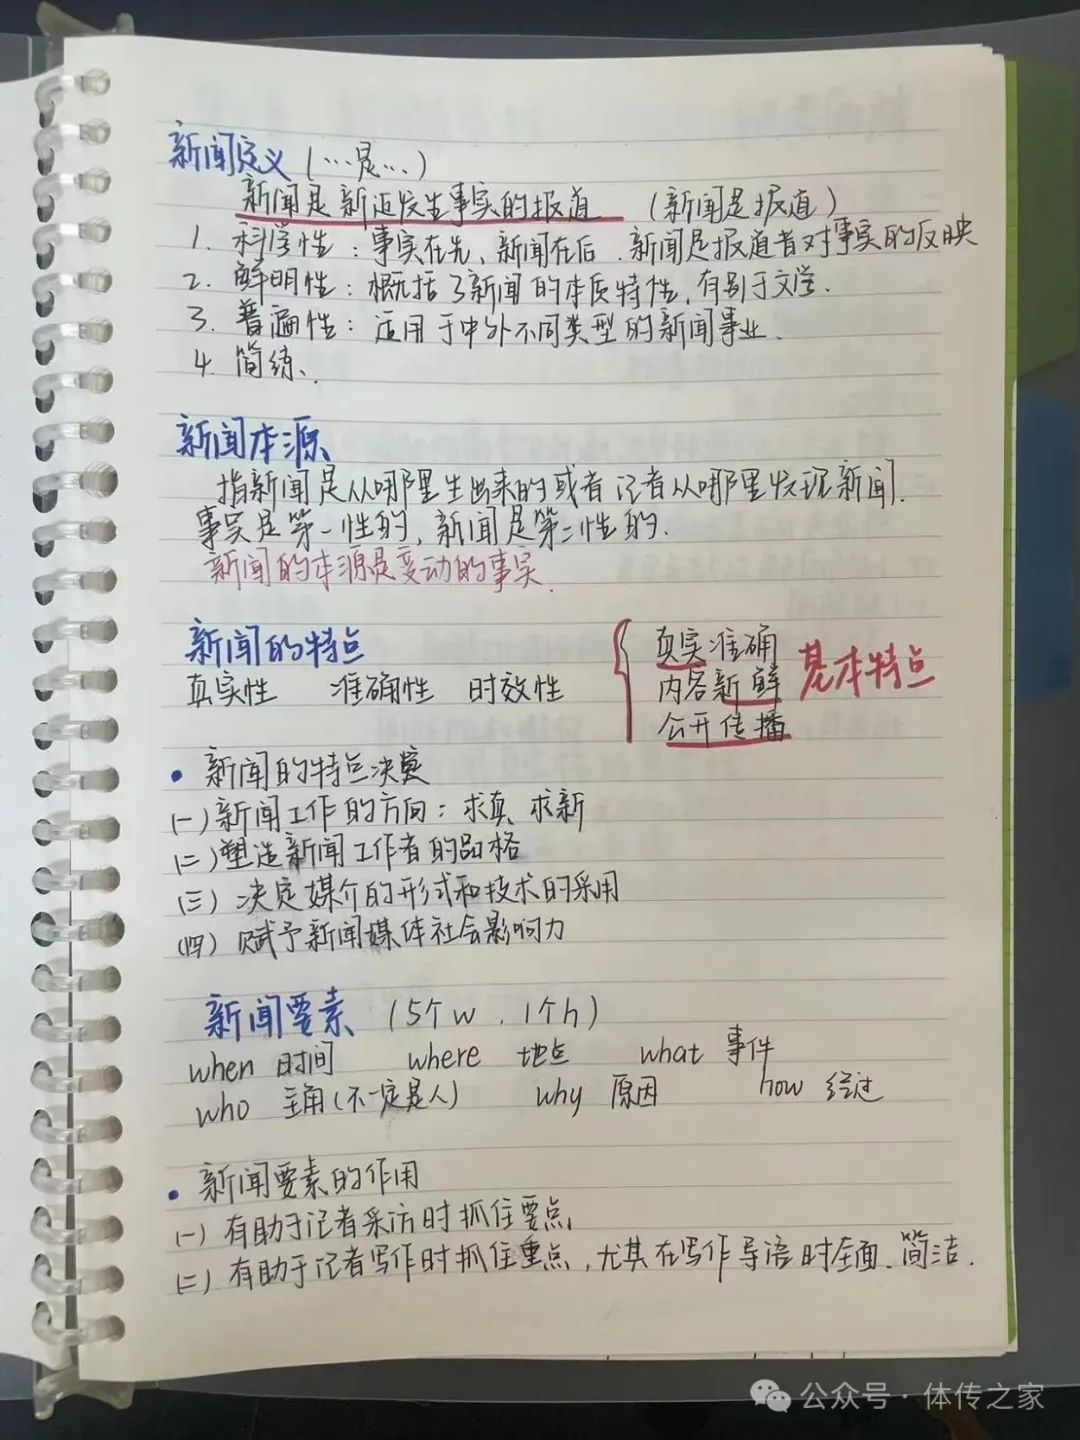 新闻定义(…是…)
新闻是新近发生事实的报道 (新闻是报道)
1. 科学性：事实在先、新闻在后.新闻是报道者对事实的反映
2. 鲜明性：概括了新闻的本质特性,有别于文学.
3. 普遍性：适用于中外不同类型的新闻事业.
4. 简练、
新闻本源
指新闻是从哪里生出来的或者记者从哪里发现新闻.
事实是第一性的,新闻是第二性的.
新闻的本源是变动的事实.
新闻的特点
真实性 准确性 时效性
真实准确
内容新鲜
公开传播
基本特点
• 新闻的特点决定
(一)新闻工作的方向：求真、求新
(二)塑造新闻工作者的品格
(三)决定媒介的形式和技术的采用
(四)赋予新闻媒体社会影响力
新闻要素 (5个w、1个h)
when 时间 where 地点 what 事件
who 主角(不一定是人) why 原因 how 经过
• 新闻要素的作用
(一)有助于记者采访时抓住要点
(二)有助于记者写作时抓住重点,尤其在写作导语时全面、简洁.
公众号·体传之家